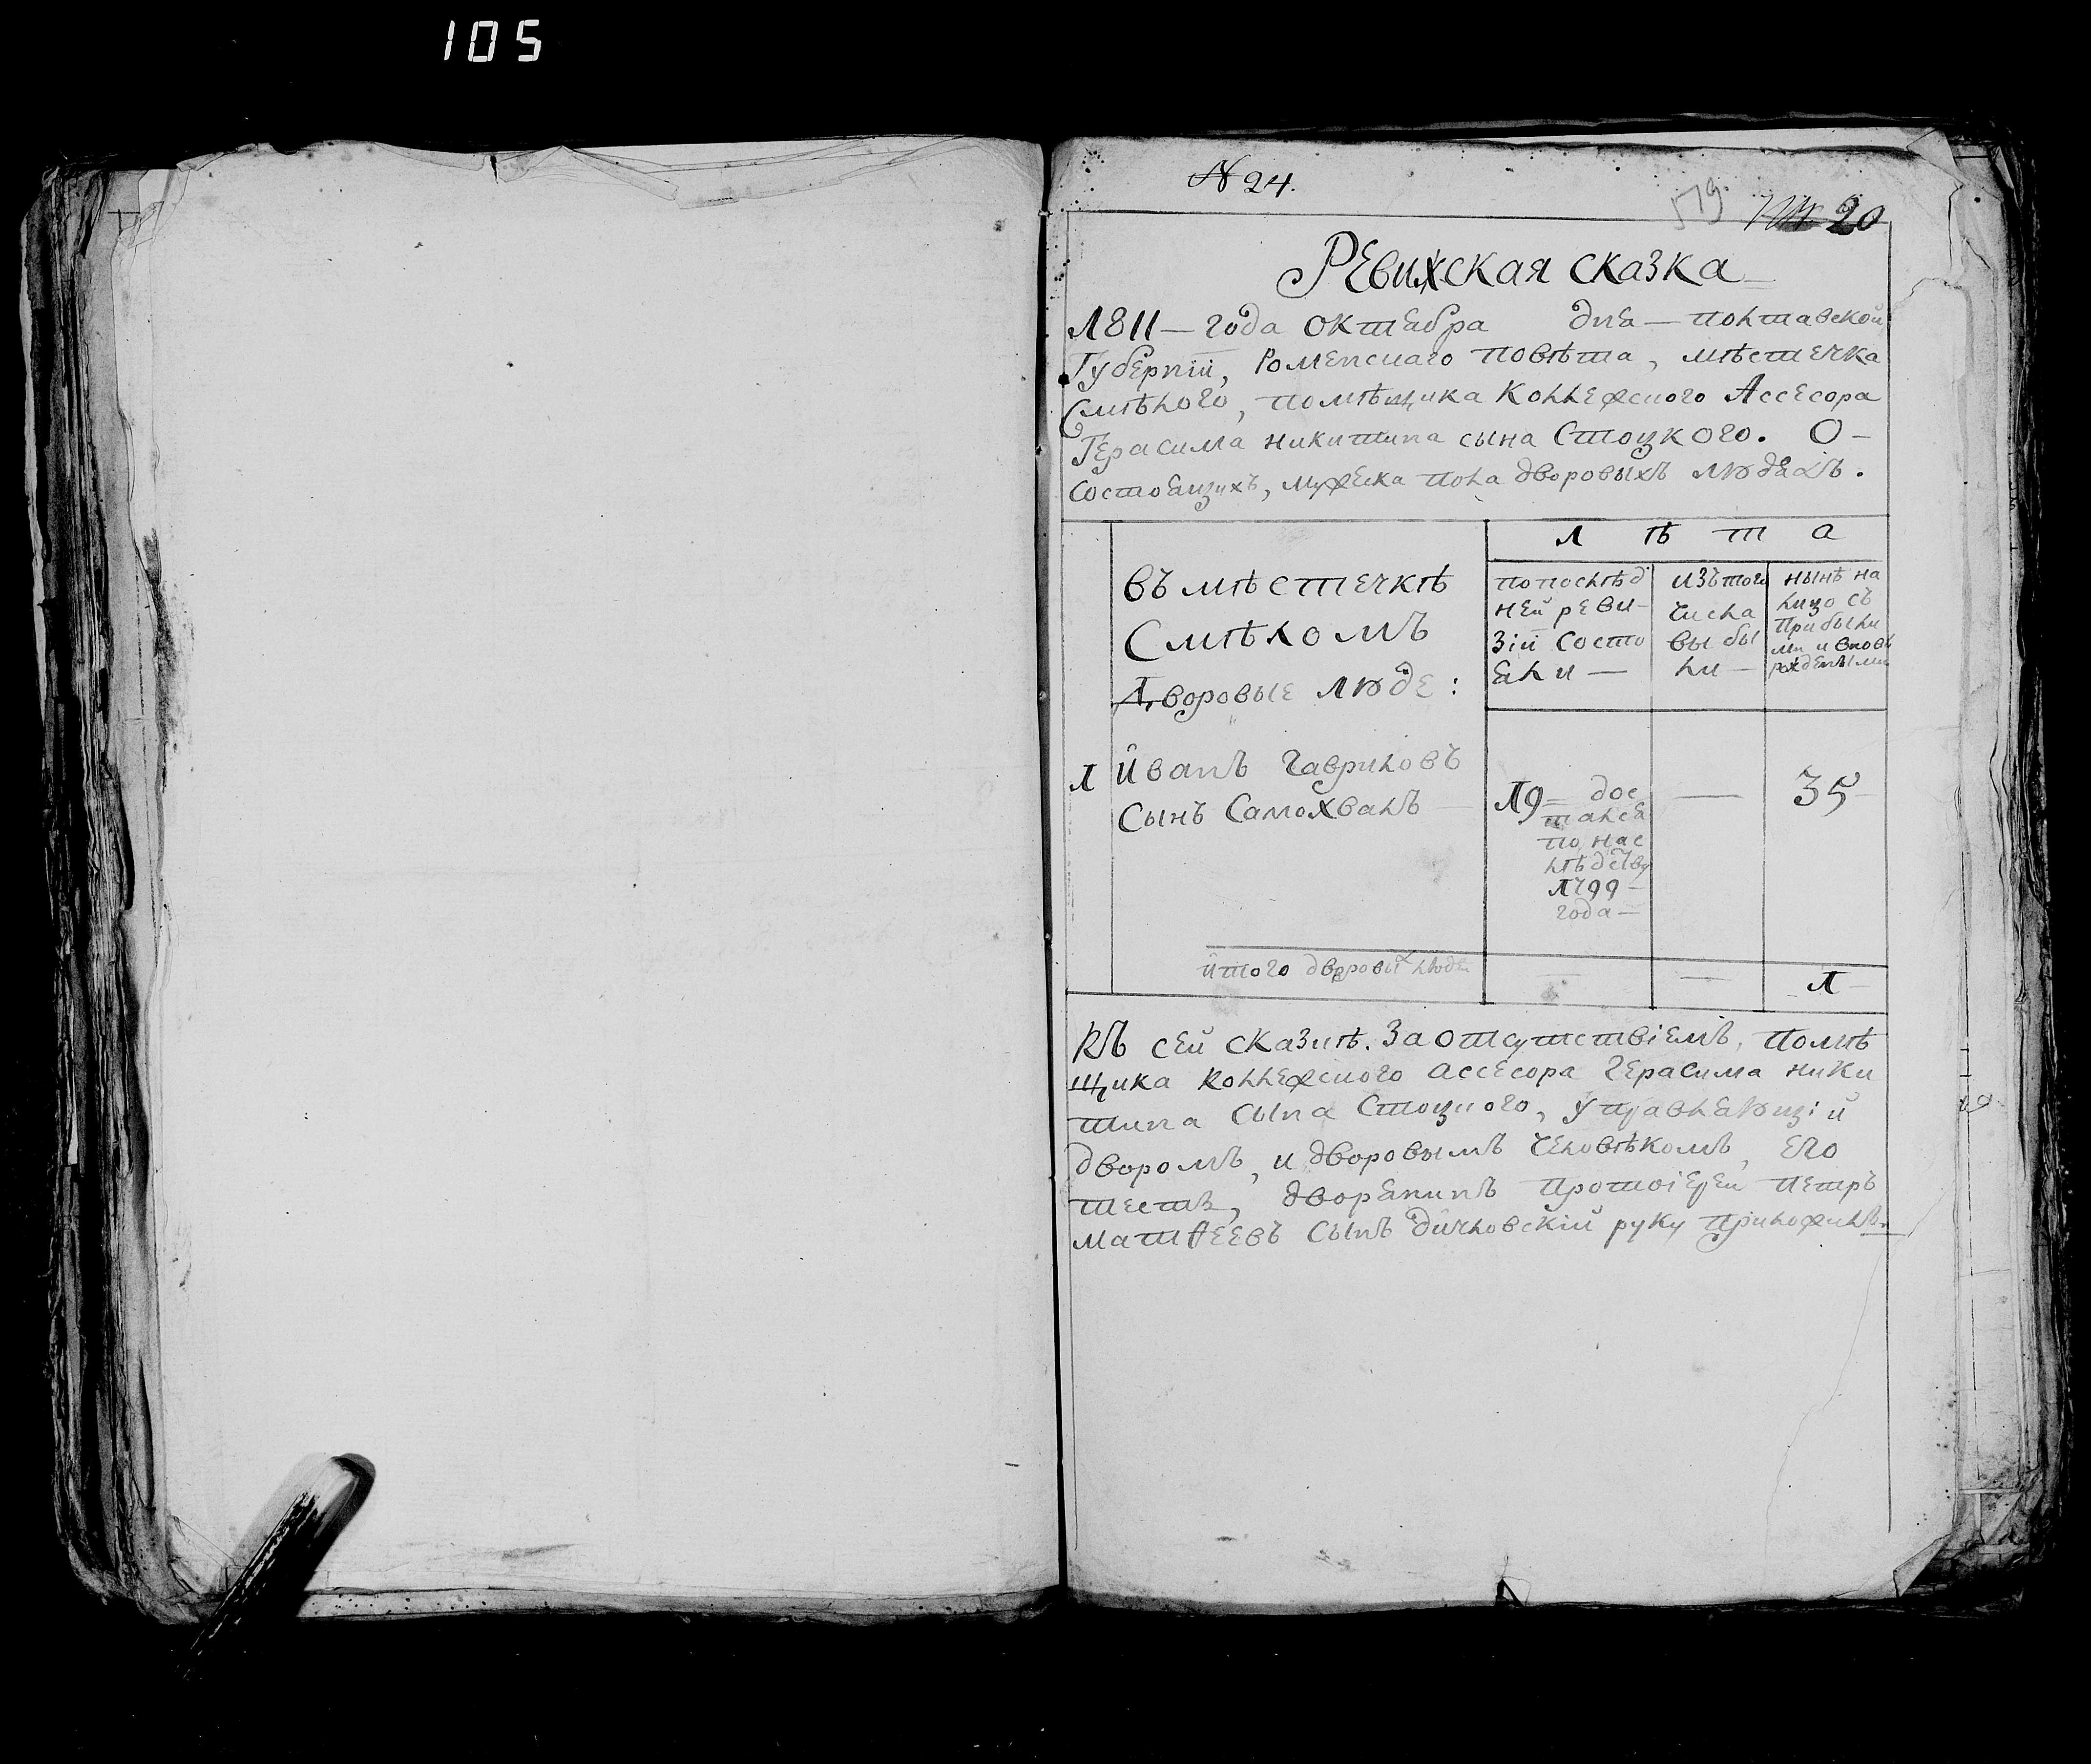 105
№ 24.
519
20
Ревижская сказка
1811 — года октебра дне — полтавской
Губерніи, Роменскаго повѣта, мѣстечка
Смѣлого, помѣщика Коллежского Ассесора
Герасима никитина сына Стоцкого. О-
состоещихъ, мужеска пола дворовыхъ людехъ.
Лѣта
въ мѣстечкѣ
Смѣломъ
Дворовые люде:
по послѣд
ней реви-
зіи состо
ели —
изъ того
числа
выбы
ли —
нынѣ на
лицо съ
прибылы
ми и вновь
рожденными
1
Иванъ Гавриловъ
сынъ Самохвалъ
19 — дос
талсе
по нас
лѣдству
1799 —
года —
—
35
итого дворовыхъ людей
—
—
1
Къ сей сказкѣ. За отсутствіемъ, помѣ
щика коллежского ассесора Герасима ники
тина сына Стоцкого, управлеющій
дворомъ, и дворовымъ человѣкомъ, его
тесть, дворенинъ протоіерей петръ
матѳеевъ сынъ дичковскій руку приложилъ